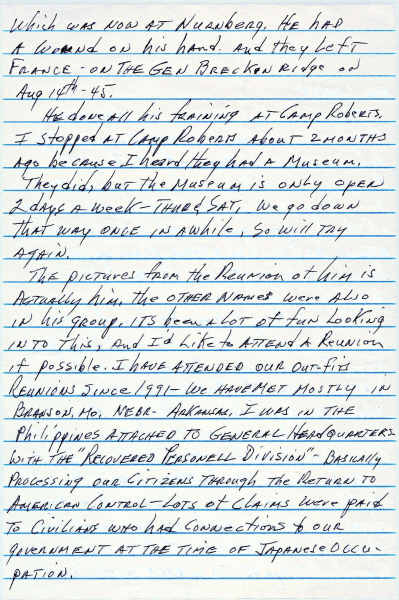 Which was now at Nurnberg. He had
a wound on his hand. And they left
France - on the Gen Breckenridge on
Aug 14th - 45.
He done all his training at Camp Roberts.
I stopped at Camp Roberts about 2 months
ago because I heard they had a Museum.
They did, but the Museum is only open
2 days a week - Thur & Sat, we go down
that way once in awhile, so will try
again.
The pictures from the Reunion of him is
actually him, the other names were also
in his group. Its been a lot of fun looking
into this, and I'd like to attend a Reunion
if possible. I have attended our out-fits
Reunions since 1991 - we have met mostly in
Branson, Mo. Nebr - Arkansas. I was in the
Philippines attached to General Headquarters
with the "Recovered Personell Division" - Basically
Processing our citizens through the return to
American control - Lots of claims were paid
to civilians who had connections to our
government at the time of Japanese occu-
pation.